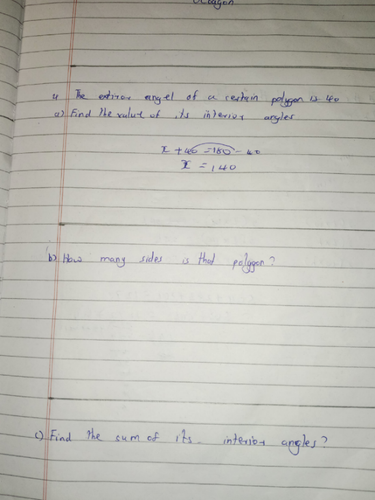 4. The extiror angel of a certain polygon is 40
a) Find the value of its interior angles
x + 40 = 180 - 40
x = 140
b) How many sides is that polygon?
c) Find the sum of its interior angles?